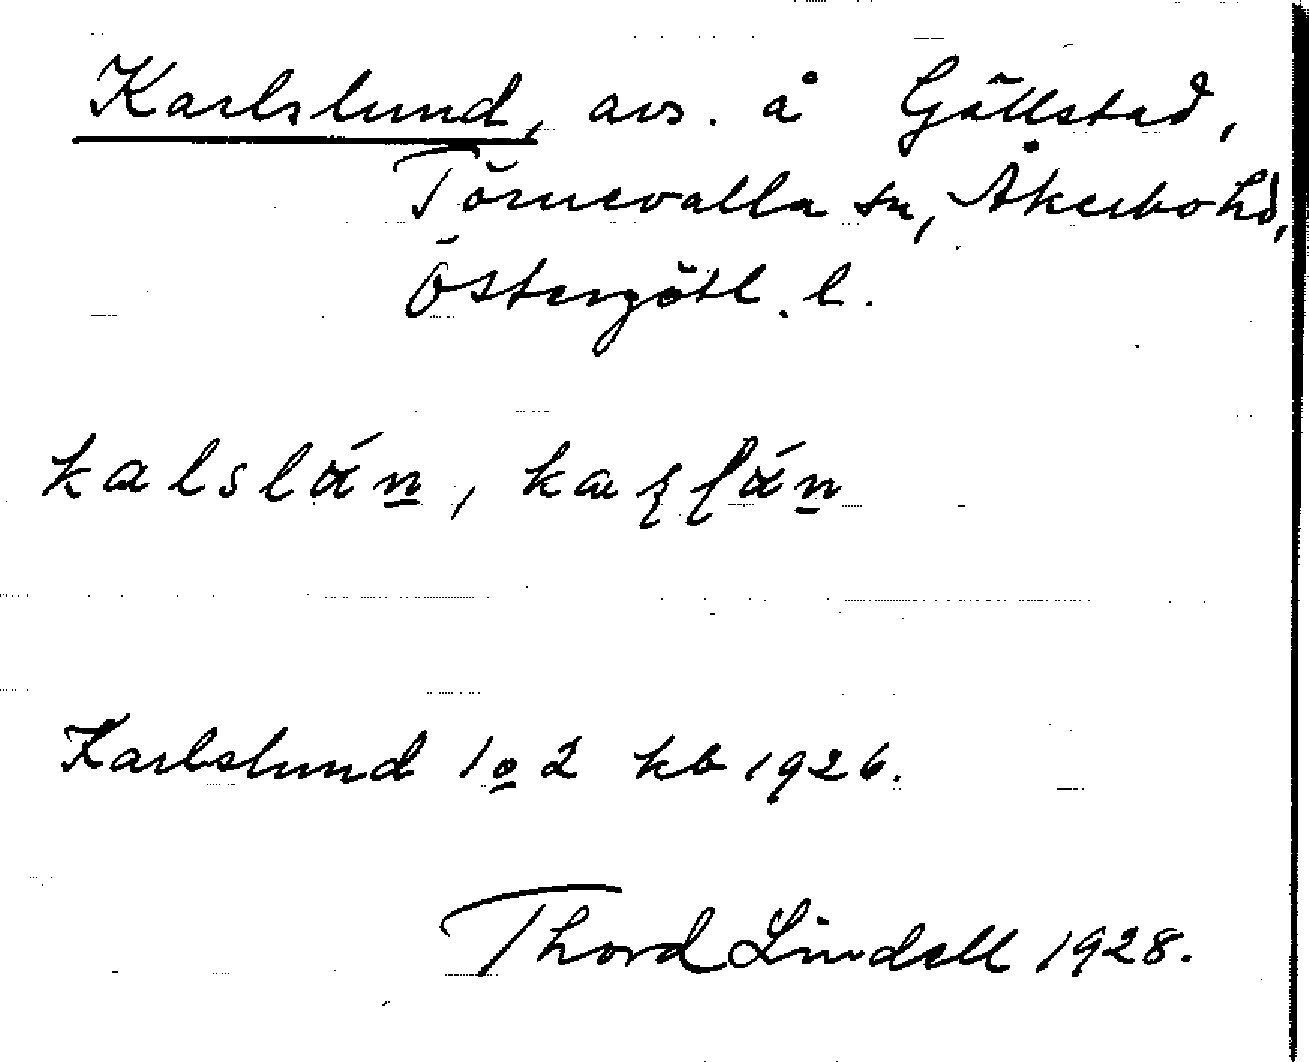 Karlslund, avs. å Gällstad,
Törnevalla sn, Åkerbo hd,
Östergötl. l.
kalslán̲,
Karlslund 1 o 2 kb 1926.
Thord Lindell 1928.